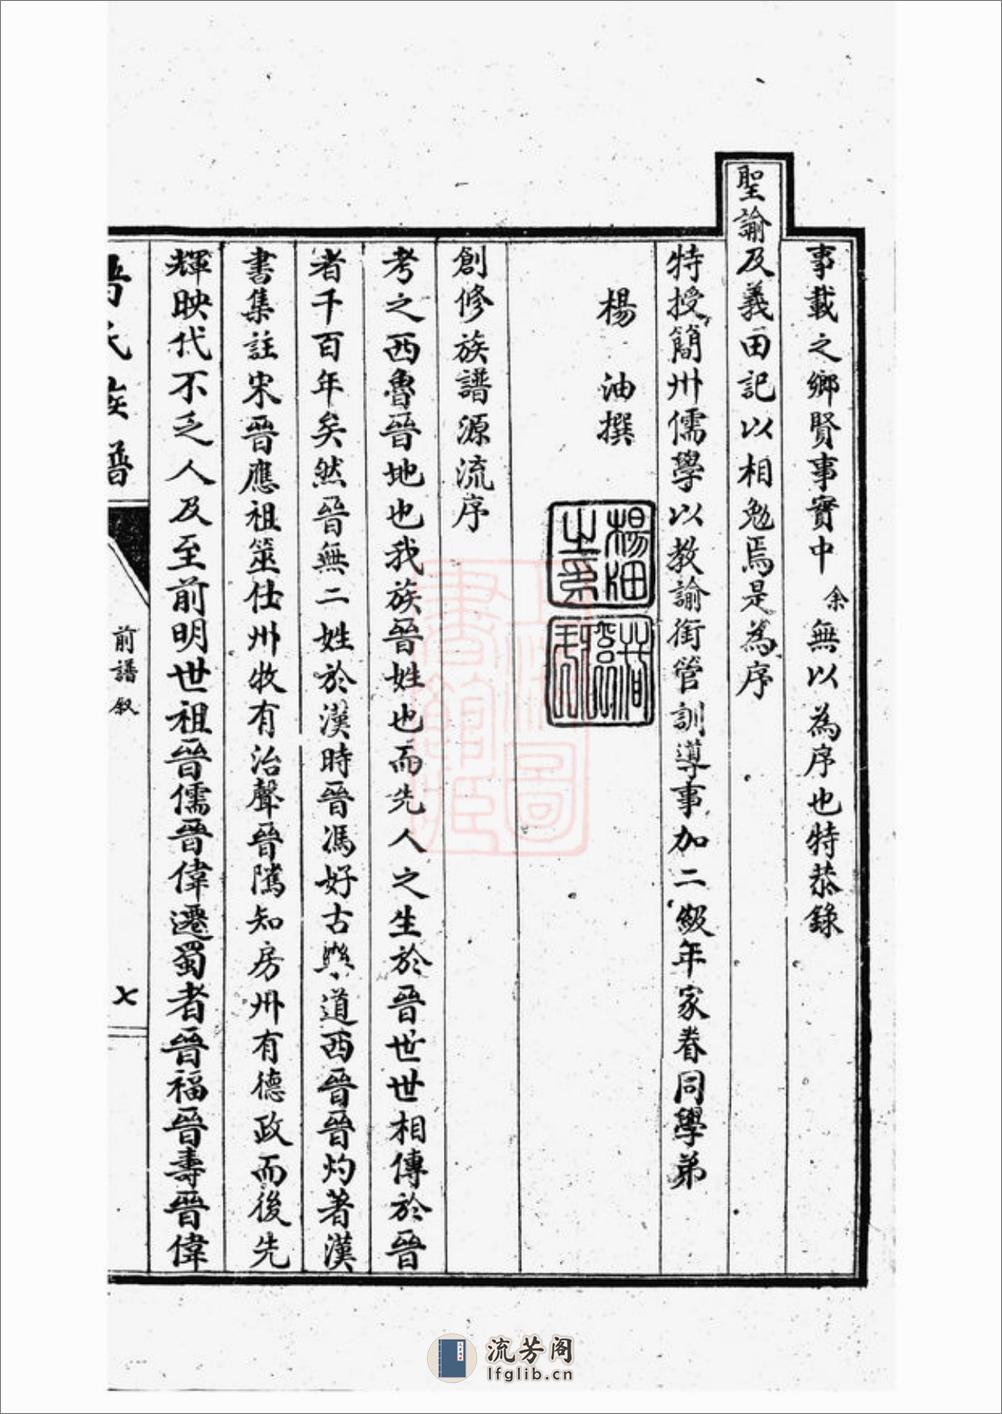 事載之鄉賢事實中余無以為序也特恭錄
聖諭及義田記以相勉焉是為序
特授簡州儒學以教諭銜管訓導事加二級年家眷同學弟
楊油撰
創修族譜源流序
考之西魯晉地也我族晉姓也而先人之生於晉世世相傳於晉
者千百年矣然晉無二姓於漢時晉馮好古樂道西晉晉灼著漢
書集註宋晉應祖筮仕州牧有治聲晉隲知房州有德政而後先
輝映代不乏人及至前明世祖晉儒晉偉遷蜀者晉福晉壽晉偉
晉氏族譜
前譜叙
七
上海圖
書館藏
流芳阁
lfglib.cn